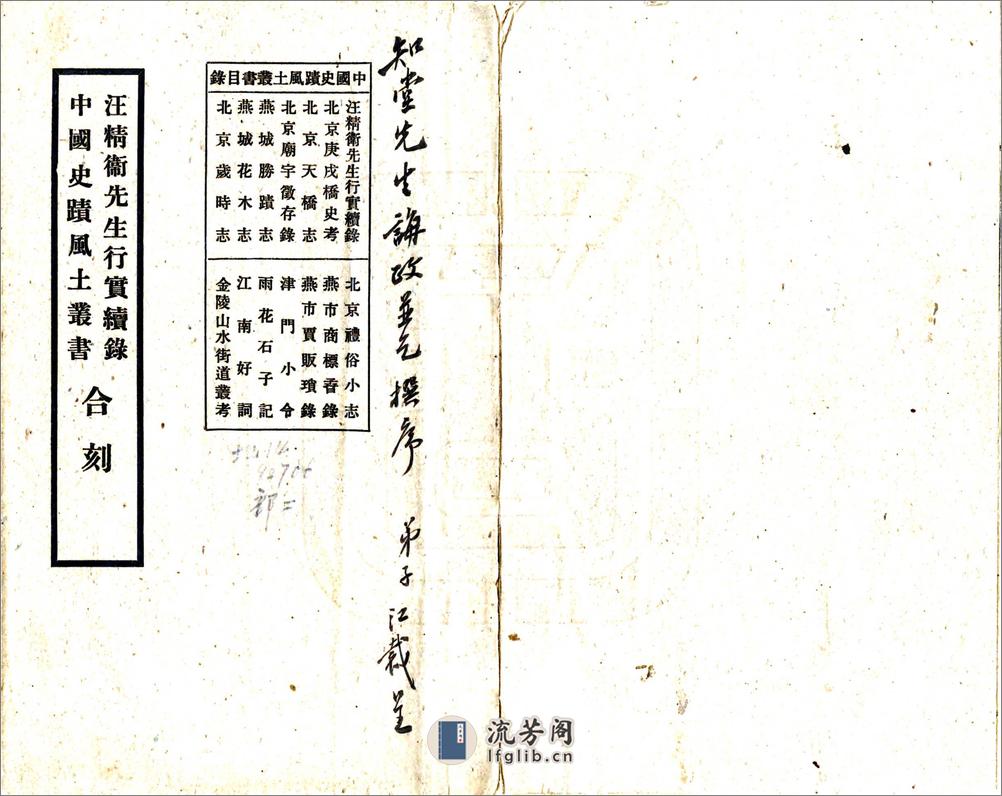 知堂先生誨政並乞撰序
弟子 江裁呈
中國史蹟風土叢書目錄
汪精衛先生行實續錄
北京庚戌橋史考
北京天橋志
北京廟宇徵存錄
燕城勝蹟志
燕城花木志
北京歲時志
北京禮俗小志
燕市商標香錄
燕市賈販瑣錄
津門小令
雨花石子記
江南好詞
金陵山水街道叢考
汪精衞先生行實續錄
中國史蹟風土叢書
合刻
部二
流芳阁
lfglib.cn